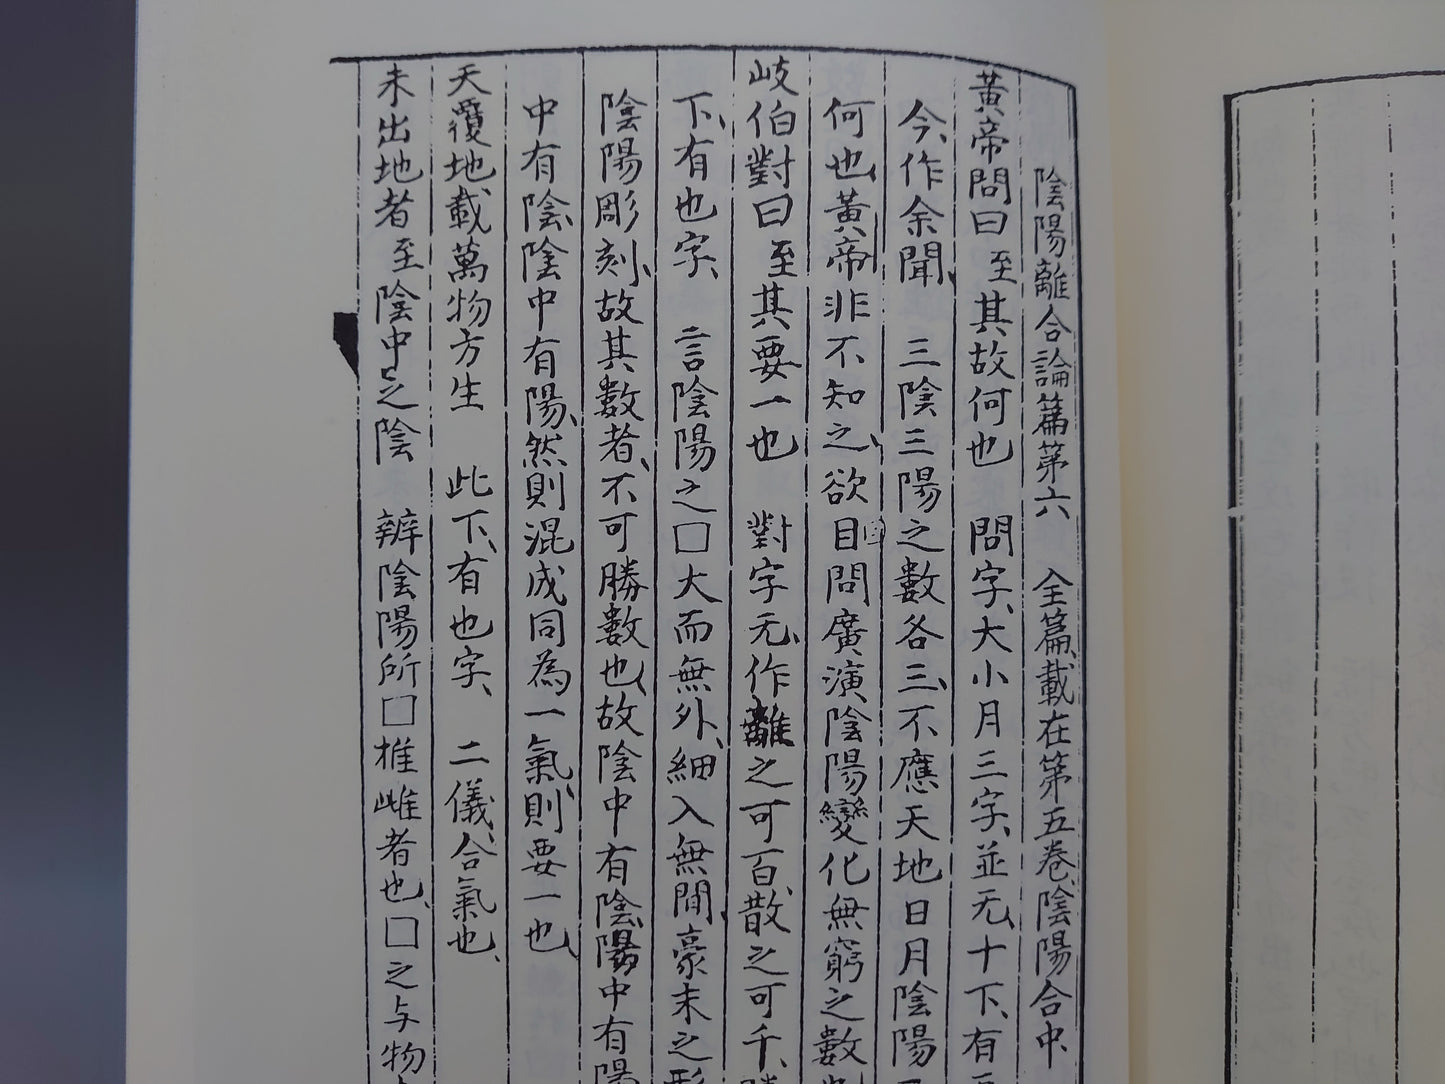 陰陽離合論篇第六　全篇、載在第五卷、陰陽合中、
黃帝問曰至其故何也　問字、大小月三字、並无、十下、有
今、作余聞、　三陰三陽之數各三、不應天地日月陰陽
何也、黃帝非不知之、欲目問廣演陰陽變化無窮之數
岐伯對曰至其要一也　對字无、作離之可百、散之可千、
下、有也字、　言陰陽之□大而無外、細入無間、豪末之形
陰陽彫刻、故其數者、不可勝數也、故陰中有陰、陽中有陽
中有陰、陰中有陽、然則混成同為一氣、則要一也、
天覆地載萬物方生　此下、有也字、　二儀、合氣也、
未出地者至陰中之陰　辨陰陽所□惟雌者也、□之与物